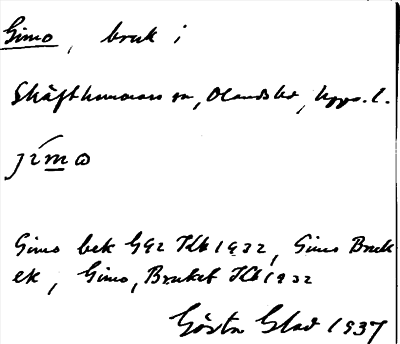 Gimo, bruk i
Skäfthammars sn, Olands hd, Upps. l.
jímɷ
Gimo bek G92 Kb 1932, Gimo Bruk
ek, Gimo, Bruket Kb 1932
Gösta Glad 1937